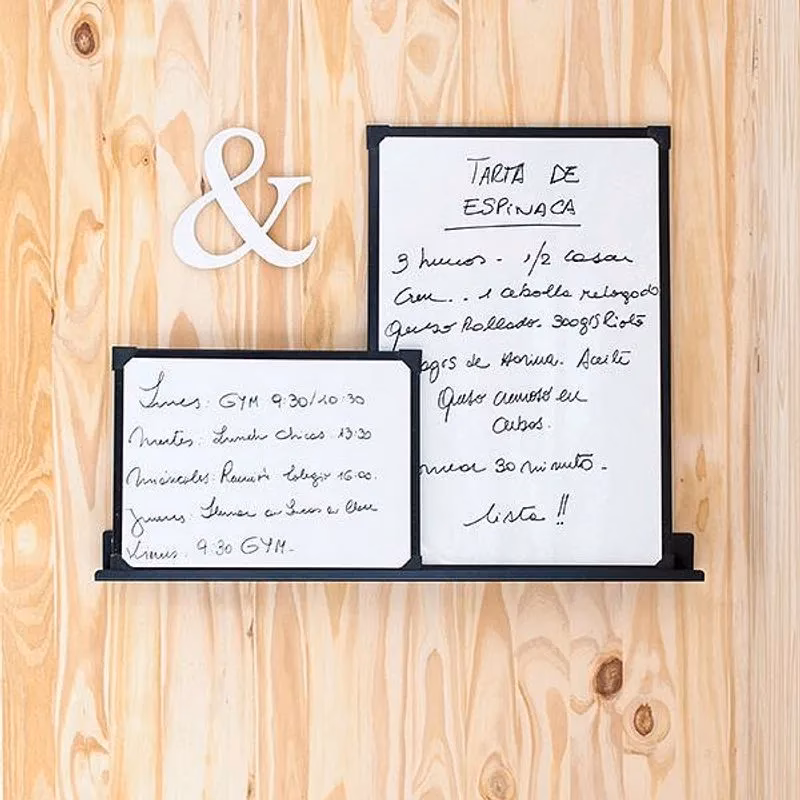 &
TARTA DE
ESPINACA
3 huevos - 1/2 casar
Crem.. 1 cebolla rehogado
Queso Rallado. 300grs Ricota
grs de Harina. Aceite
Queso cremoso en
Cubos.
30 minutos.
Lista!!
Lunes: GYM 9:30/10:30
Martes: Lunch chicas 13:30
Miércoles: Reunión Colegio 16:00.
Jueves: Llevar a Lucas a
Viernes: 9:30 GYM-